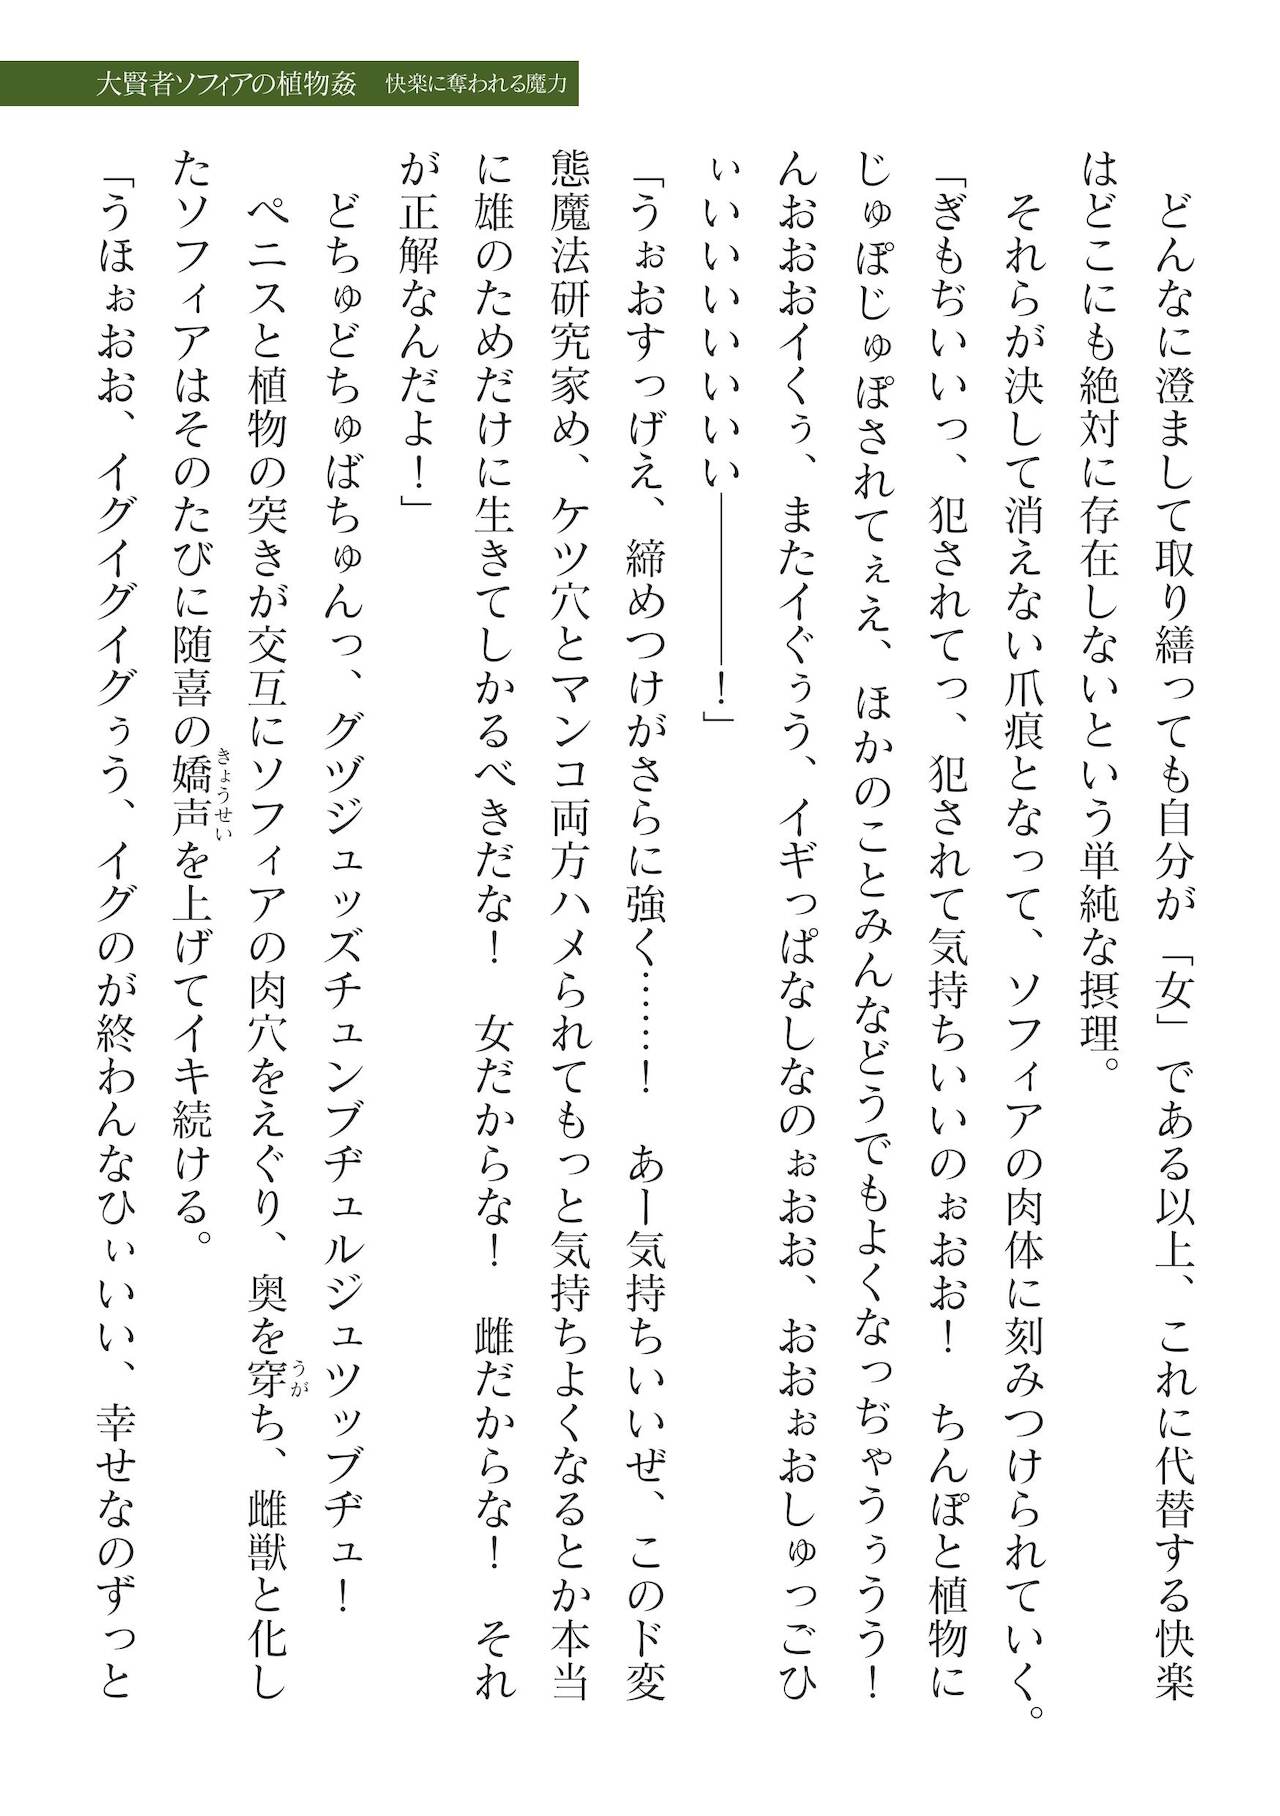 大賢者ソフィアの植物姦　快楽に奪われる魔力
　どんなに澄まして取り繕っても自分が「女」である以上、これに代替する快楽
はどこにも絶対に存在しないという単純な摂理。
　それらが決して消えない爪痕となって、ソフィアの肉体に刻みつけられていく。
「ぎもぢいいっ、犯されてっ、犯されて気持ちいいのぉおお！　ちんぽと植物に
じゅぽじゅぽされてぇえ、ほかのことみんなどうでもよくなっぢゃうぅうう！
んおおおイくぅ、またイぐぅう、イギっぱなしなのぉおお、おおぉおしゅっごひ
ぃいいいいいいい――――！」
「うぉおすっげえ、締めつけがさらに強く……！　あー気持ちいいぜ、このド変
態魔法研究家め、ケツ穴とマンコ両方ハメられてもっと気持ちよくなるとか本当
に雄のためだけに生きてしかるべきだな！　女だからな！　雌だからな！　それ
が正解なんだよ！」
　どちゅどちゅばちゅんっ、グヅジュッズチュンブヂュルジュツッブヂュ！
　ペニスと植物の突きが交互にソフィアの肉穴をえぐり、奥を穿ち、雌獣と化し
うが
たソフィアはそのたびに随喜の嬌声を上げてイキ続ける。
きょうせい
「うほぉおお、イグイグイグぅう、イグのが終わんなひぃいい、幸せなのずっと